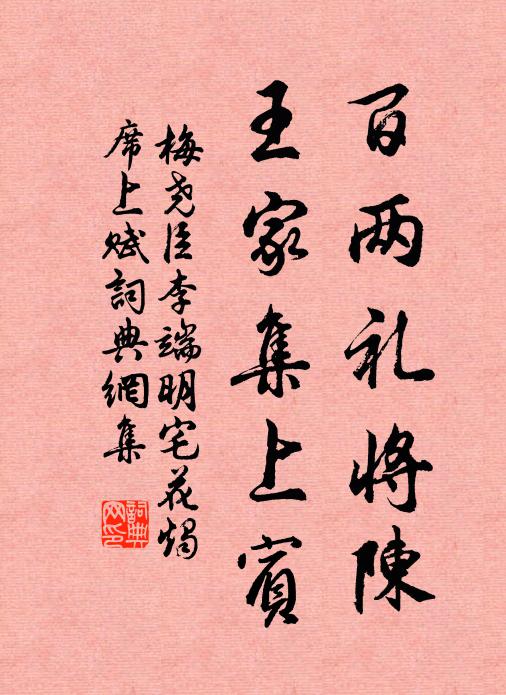 百两礼将陳
王家集上賓
梅尧臣李端明宅花燭
席上赋詞典網集
詞典
网印